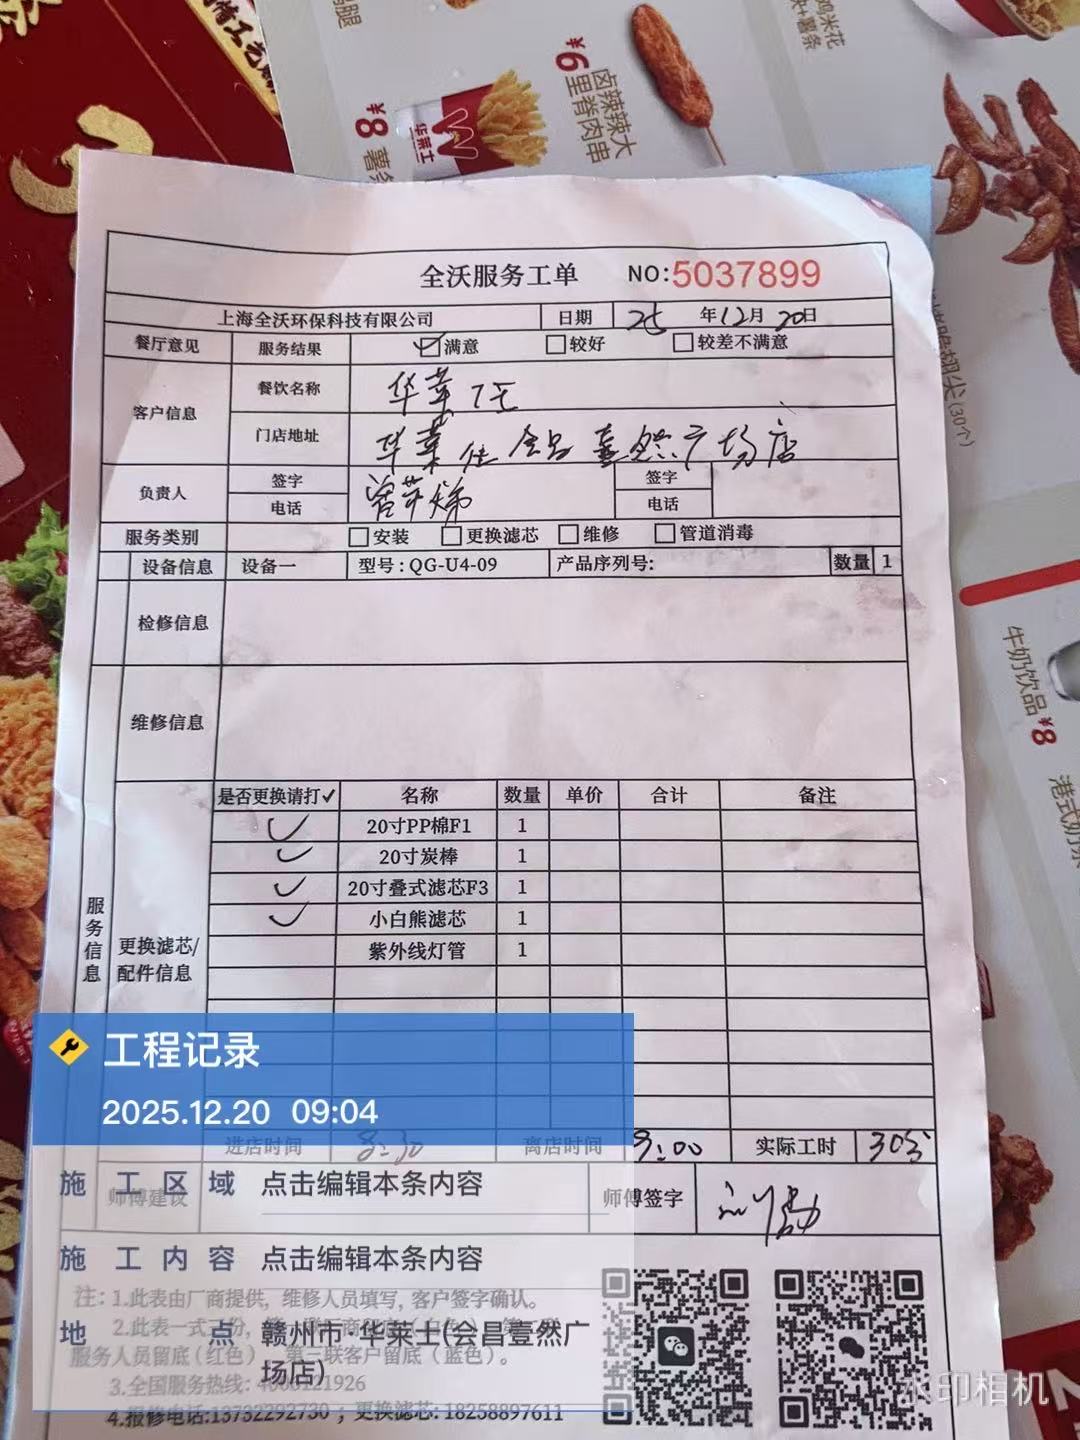 ¥8
薯条
华莱士
¥9
卤辣辣大
里脊肉串
鸡米花
块+薯条
翅尖(30个)
牛奶饮品
¥8
港式奶茶
全沃服务工单 NO:5037899
上海全沃环保科技有限公司 日期 25 年12月20日
餐厅意见 服务结果 满意 较好 较差不满意
客户信息 餐饮名称 华莱士
门店地址 华莱仕会昌壹然广场店
负责人 签字 签字
电话 电话
服务类别 安装 更换滤芯 维修 管道消毒
设备信息 设备一 型号:QG-U4-09 产品序列号: 数量 1
检修信息
维修信息
服务信息
更换滤芯/
配件信息
是否更换请打✓ 名称 数量 单价 合计 备注
✓ 20寸PP棉F1 1
✓ 20寸炭棒 1
✓ 20寸叠式滤芯F3 1
✓ 小白熊滤芯 1
紫外线灯管 1
工程记录
2025.12.20 09:04
进店时间 8:30 离店时间 9:00 实际工时 30分
师傅建议 师傅签字
施工区域 点击编辑本条内容
施工内容 点击编辑本条内容
地点 赣州市·华莱士(会昌壹然广
场店)
注: 1.此表由厂商提供，维修人员填写，客户签字确认。
服务人员留底(红色) 第三联客户留底(蓝色)。
3.全国服务热线:
4.报修电话:13732292730 ; 更换滤芯: 18258897611
水印相机